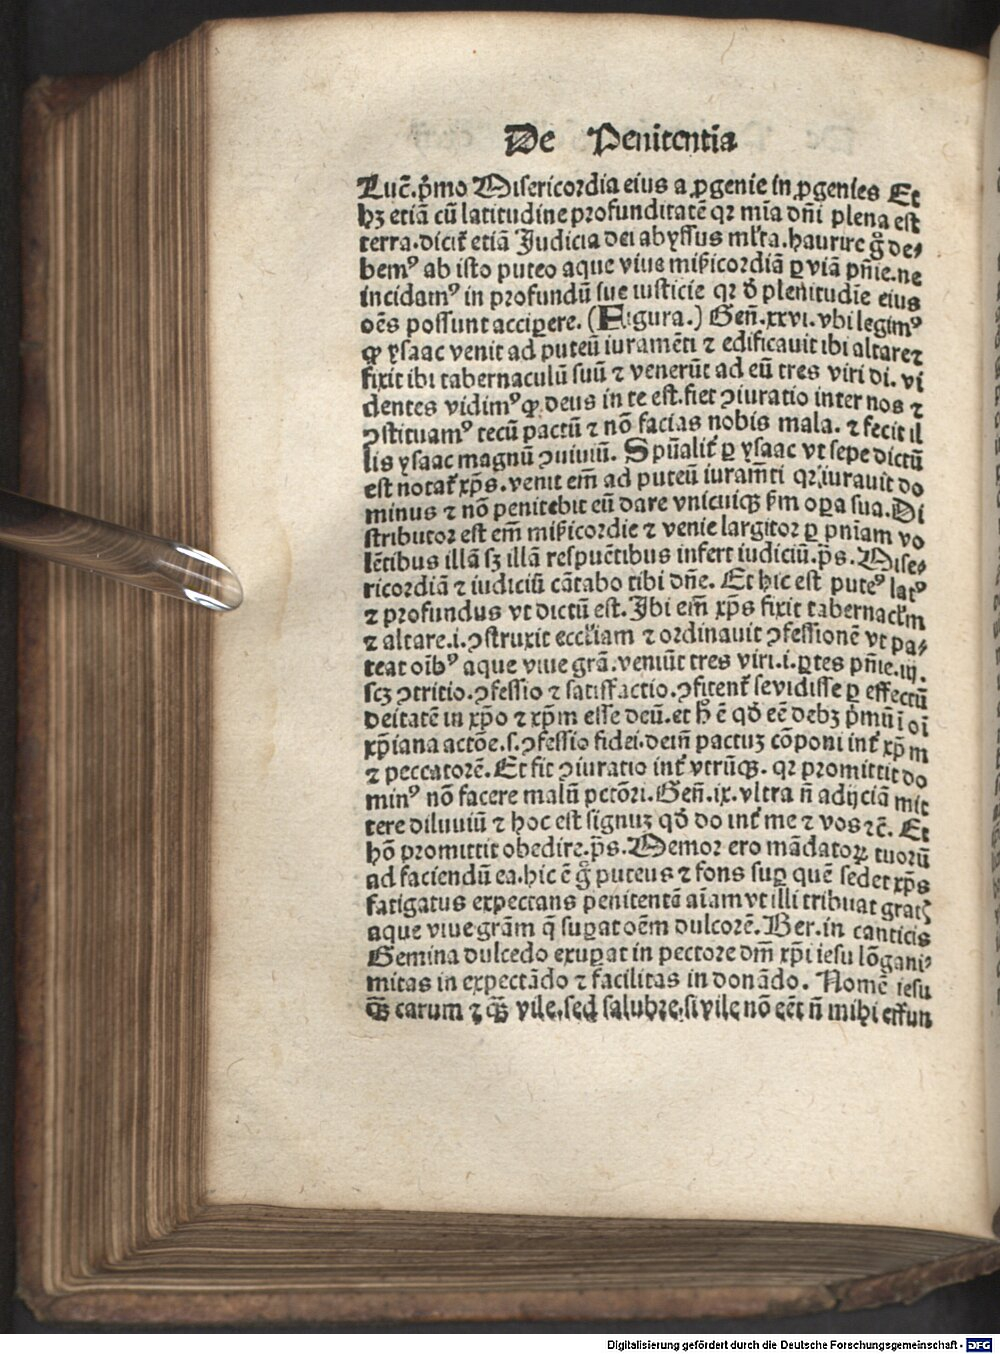 De Penitentia
Luc̄. p̄mo Misericordia eius a ꝓgenie in ꝓgenies Et
hꝫ etiā cū latitudine profunditatē qꝛ mīa dn̄i plena est
terra. dicit̄ etiā Judicia dei abyssus ml̄ta. haurire gͦ de⸗
bemꝰ ab isto puteo aque viue mīs̄icordiā ꝑ viā pn̄ie. ne
incidamꝰ in profundū sue iusticie qꝛ ꝺ̄ plenitudīe eius
oēs possunt accipere. (Figura.) Gen̄. xxvi. vbi legimꝰ
ꝙ ysaac venit ad puteū iuramēti ⁊ edificauit ibi altare⁊
fixit ibi tabernaculū suū ⁊ venerūt ad eū tres viri di. vi
dentes vidimꝰ ꝙ deus in te est. fiet ꝯiuratio inter nos ⁊
ꝯstituamꝰ tecū pactū ⁊ nō facias nobis mala. ⁊ fecit il
lis ysaac magnū ꝯuiuiū. Spūalit̄ ꝑ ysaac vt sepe dictū
est notat̄ xp̄s. venit em̄ ad puteū iuram̄ti qꝛ iurauit do
minus ⁊ nō penitebit eū dare vnicuiqꝫ s̄m oꝑa sua. Di
stributor est em̄ mīs̄icordie ⁊ venie largitor ꝑ pn̄iam vo
lētibus illā sꝫ illā respuētibus infert iudiciū. p̄s. Mise⸗
ricordiā ⁊ iudiciū cātabo tibi dn̄e. Et hic est puteꝰ latꝰ
⁊ profundus vt dictū est. Ibi em̄ xp̄s fixit tabernacl̄m
⁊ altare. i. ꝯstruxit eccl̄iam ⁊ ordinauit ꝯfessionē vt pa⸗
teat oīb⁹ aque viue grā. veniūt tres viri. i. ꝑtes pn̄ie. iij.
scꝫ ꝯtritio. ꝯfessio ⁊ satisfactio. ꝯfitent̄ se vidisse ꝑ effectū
deitatē in xp̄o ⁊ xp̄m esse deū. et h̄ ē qd̄ eē debꝫ p̄mū ī oī
xp̄iana actōe. s. ꝯfessio fidei. dein̄ pactuꝫ cōponi int̄ xp̄m
⁊ peccatorē. Et fit ꝯiuratio int̄ vtrūqꝫ. qꝛ promittit do
minꝰ nō facere malū pctōri. Gen̄. ix. vltra n̄ adijciā mit
tere diluuiū ⁊ hoc est signuꝫ qd̄ do int̄ me ⁊ vos ⁊c̄. Et
hō promittit obedire. p̄s. Memor ero mādatoꝝ tuorū
ad faciendū ea. hic ē gͦ puteus ⁊ fons suꝑ quē sedet xp̄s
fatigatus expectans penitentē aīam vt illi tribuat
aque viue grām q̄ suꝑat oēm dulcorē. Ber. in canticis
Gemina dulcedo exuꝑat in pectore dn̄i xp̄i iesu lōgani⸗
mitas in expectādo ⁊ facilitas in donādo. Nomē iesu
ꝙ̄ꝫ carum ⁊ ꝙ̄ꝫ vile. sed salubre. si vile nō eēt n̄ mihi effun
Digitalisierung gefördert durch die Deutsche Forschungsgemeinschaft - DFG